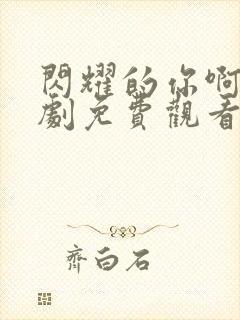 閃耀的你啊
劇免費觀看
齊白石